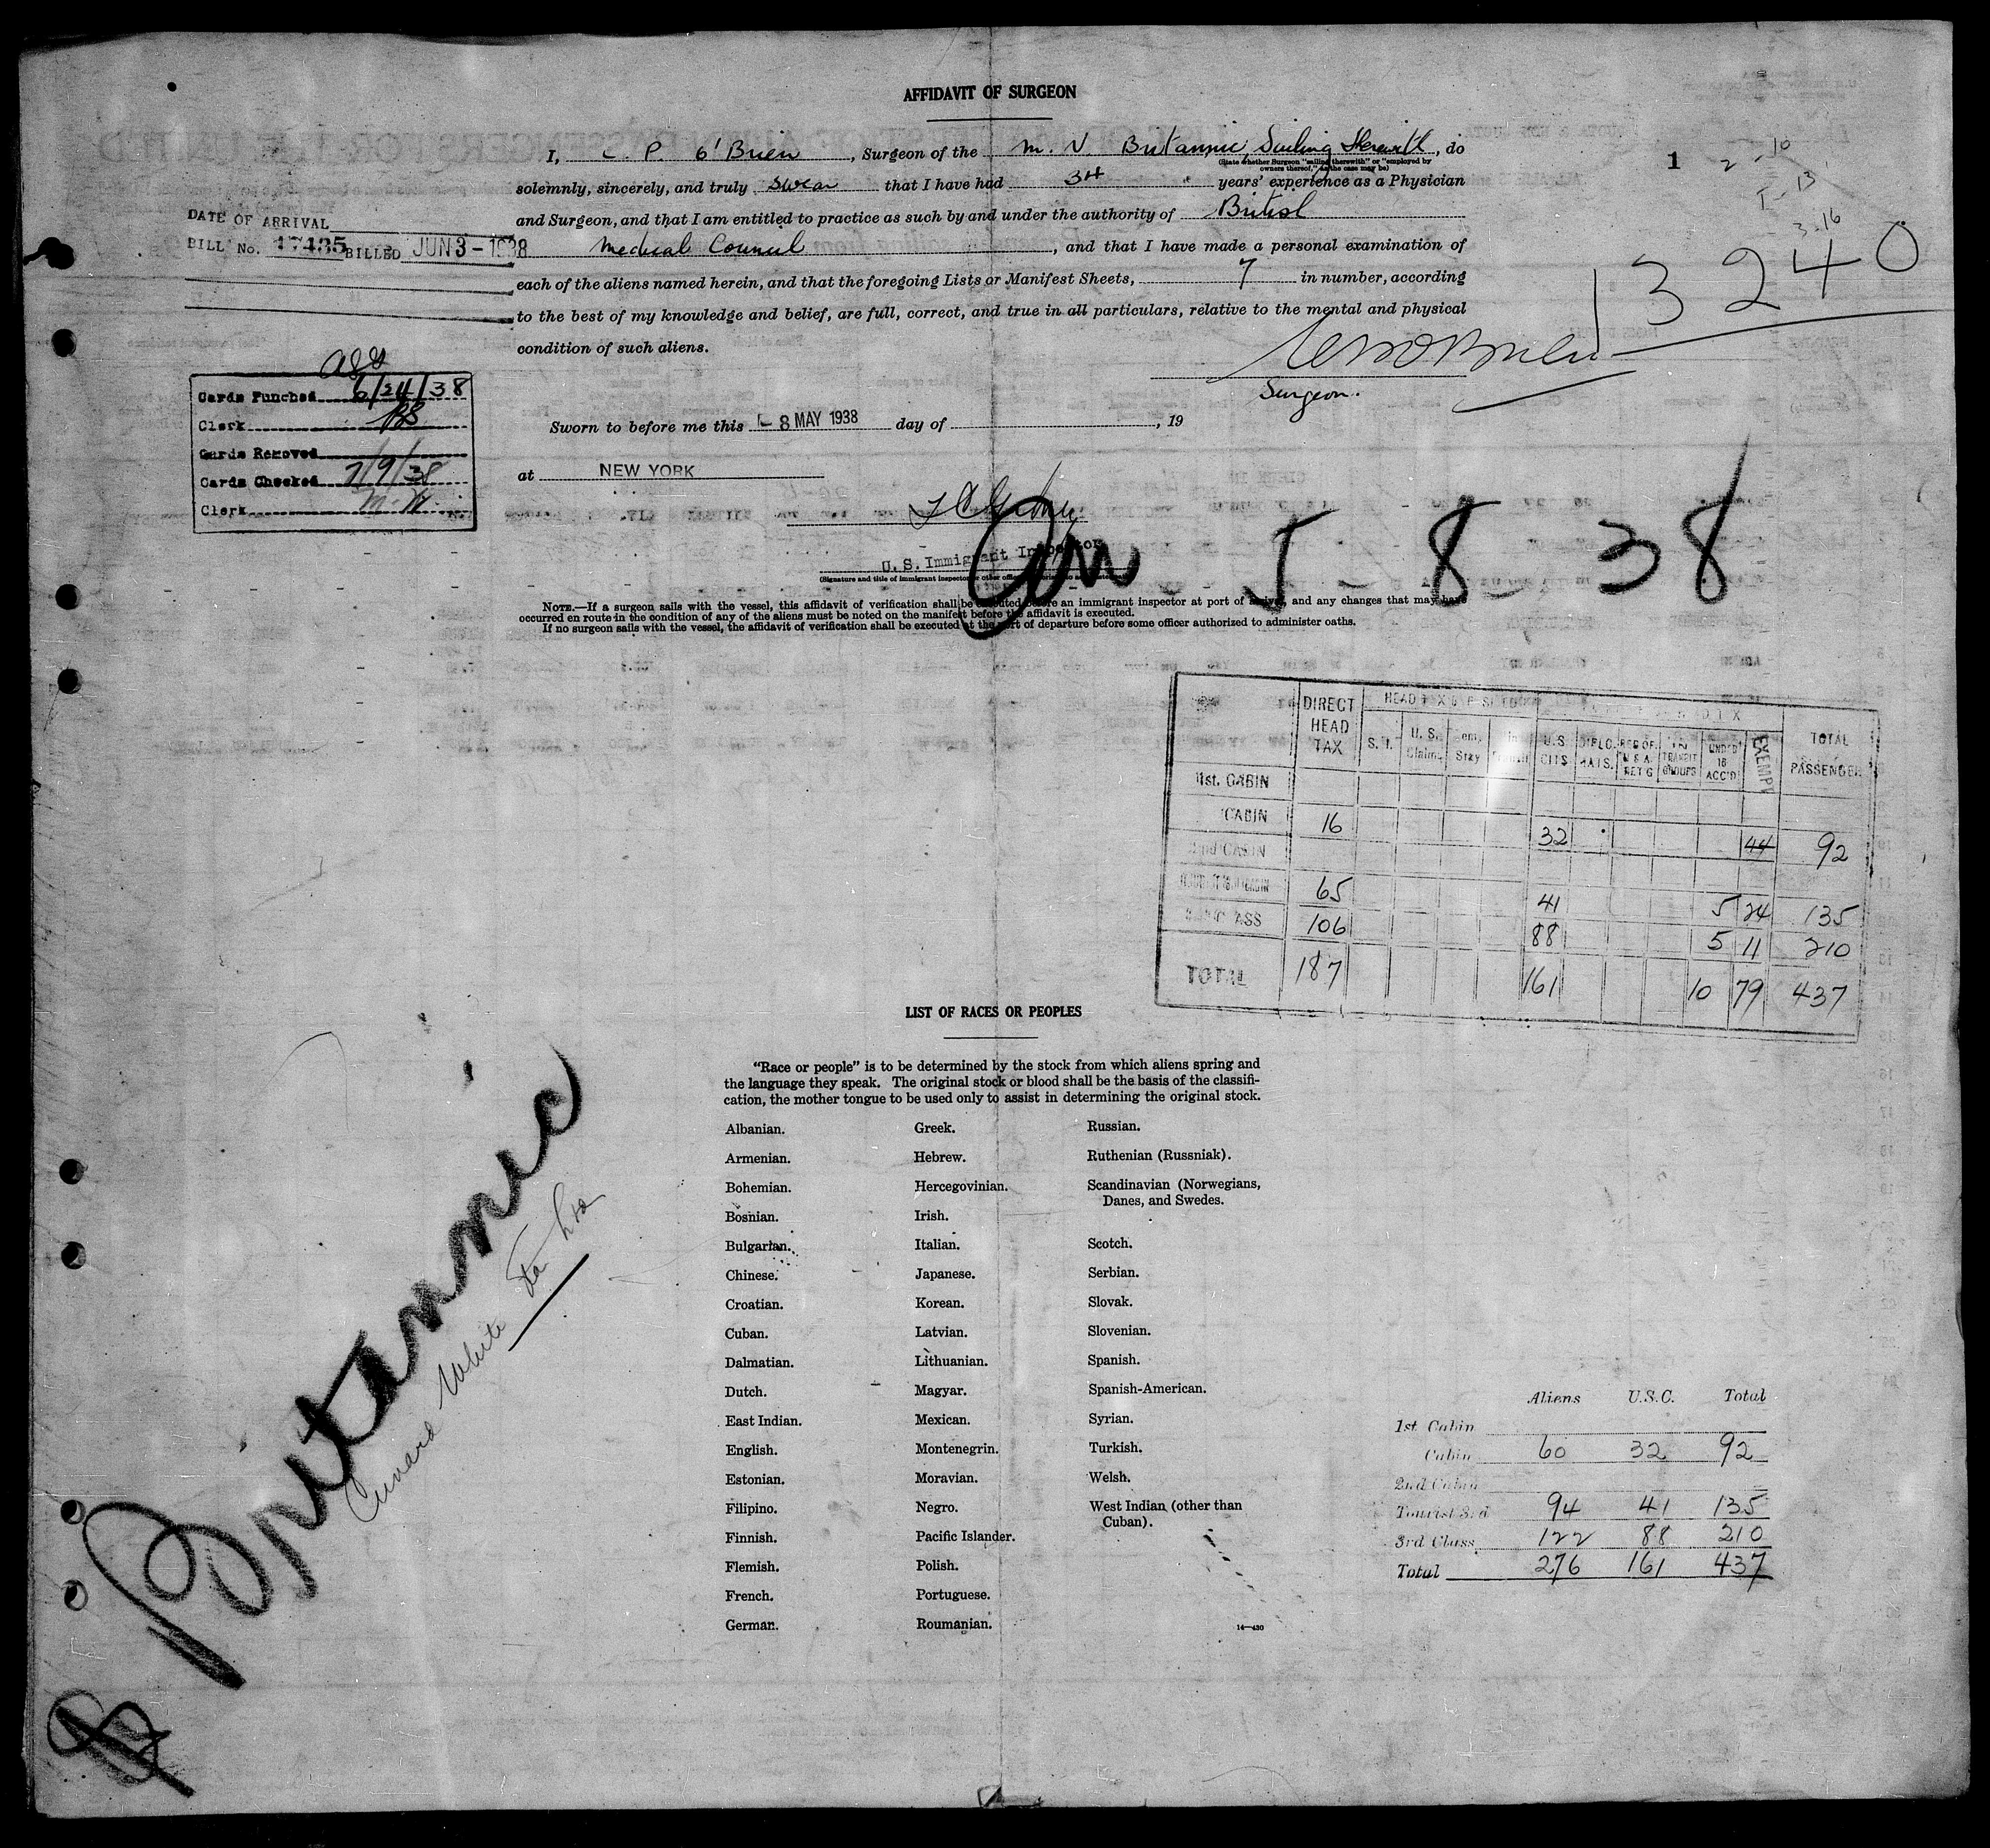 AFFIDAVIT OF SURGEON
I, C. P. O'Brien, Surgeon of the M. V. Britannic, Sailing Herewith, do
(State whether Surgeon "sailing therewith" or "employed by
owners thereof," as the case may be)
solemnly, sincerely, and truly swear that I have had 34 years' experience as a Physician
and Surgeon, and that I am entitled to practice as such by and under the authority of British
Medical Council, and that I have made a personal examination of
each of the aliens named herein, and that the foregoing Lists or Manifest Sheets, 7 in number, according
to the best of my knowledge and belief, are full, correct, and true in all particulars, relative to the mental and physical
condition of such aliens.
Surgeon.
1
2-10
3-16
13240
DATE OF ARRIVAL
BILL No. 17435 BILLED JUN 3-1938
Cards Punched 6/24/38
Clerk BS
Cards Removed
Cards Checked 7/9/38
Clerk
Sworn to before me this 8 MAY 1938 day of , 19
at NEW YORK
U. S. Immigrant Inspector
(Signature and title of immigrant inspector or other officer authorized to administer oaths)
5-8-38
NOTE.—If a surgeon sails with the vessel, this affidavit of verification shall be executed before an immigrant inspector at port of arrival, and any changes that may have
occurred en route in the condition of any of the aliens must be noted on the manifest before the affidavit is executed.
If no surgeon sails with the vessel, the affidavit of verification shall be executed at the port of departure before some officer authorized to administer oaths.
DIRECT HEAD TAX S. I. U. S. Claim. U.S. CITS DIPLOMATS. IN TRANSIT GROUPS UNDER 16 ACC'D EXEMPT TOTAL PASSENGER
1st. CABIN
CABIN 16 32 44 92
2nd CABIN
65 41 5 24 135
106 88 5 11 210
TOTAL 187 161 10 79 437
LIST OF RACES OR PEOPLES
"Race or people" is to be determined by the stock from which aliens spring and
the language they speak. The original stock or blood shall be the basis of the classifi-
cation, the mother tongue to be used only to assist in determining the original stock.
Albanian.
Armenian.
Bohemian.
Bosnian.
Bulgarian.
Chinese.
Croatian.
Cuban.
Dalmatian.
Dutch.
East Indian.
English.
Estonian.
Filipino.
Finnish.
Flemish.
French.
German.
Greek.
Hebrew.
Hercegovinian.
Irish.
Italian.
Japanese.
Korean.
Latvian.
Lithuanian.
Magyar.
Mexican.
Montenegrin.
Moravian.
Negro.
Pacific Islander.
Polish.
Portuguese.
Roumanian.
Russian.
Ruthenian (Russniak).
Scandinavian (Norwegians,
Danes, and Swedes.
Scotch.
Serbian.
Slovak.
Slovenian.
Spanish.
Spanish-American.
Syrian.
Turkish.
Welsh.
West Indian (other than
Cuban).
14—430
Britannic
Cunard White Sta
Aliens U.S.C. Total
1st Cabin
Cabin 60 32 92
2nd Cabin
Tourist 3rd 94 41 135
3rd Class 122 88 210
Total 276 161 437